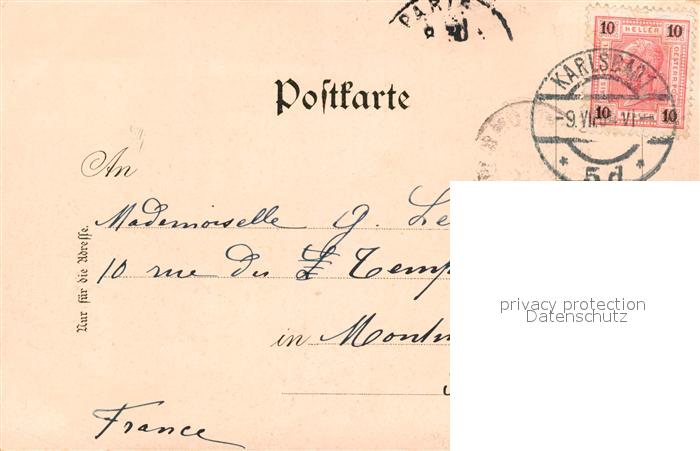 PARIS
10 HELLER 10
KARLSBAD
10 10
-9.VII
5d
Poſtkarte
An
Mademoiselle G. Le
10 rue du Temp
in Montm
Nur für die Adreſſe.
France
privacy protection
Datenschutz